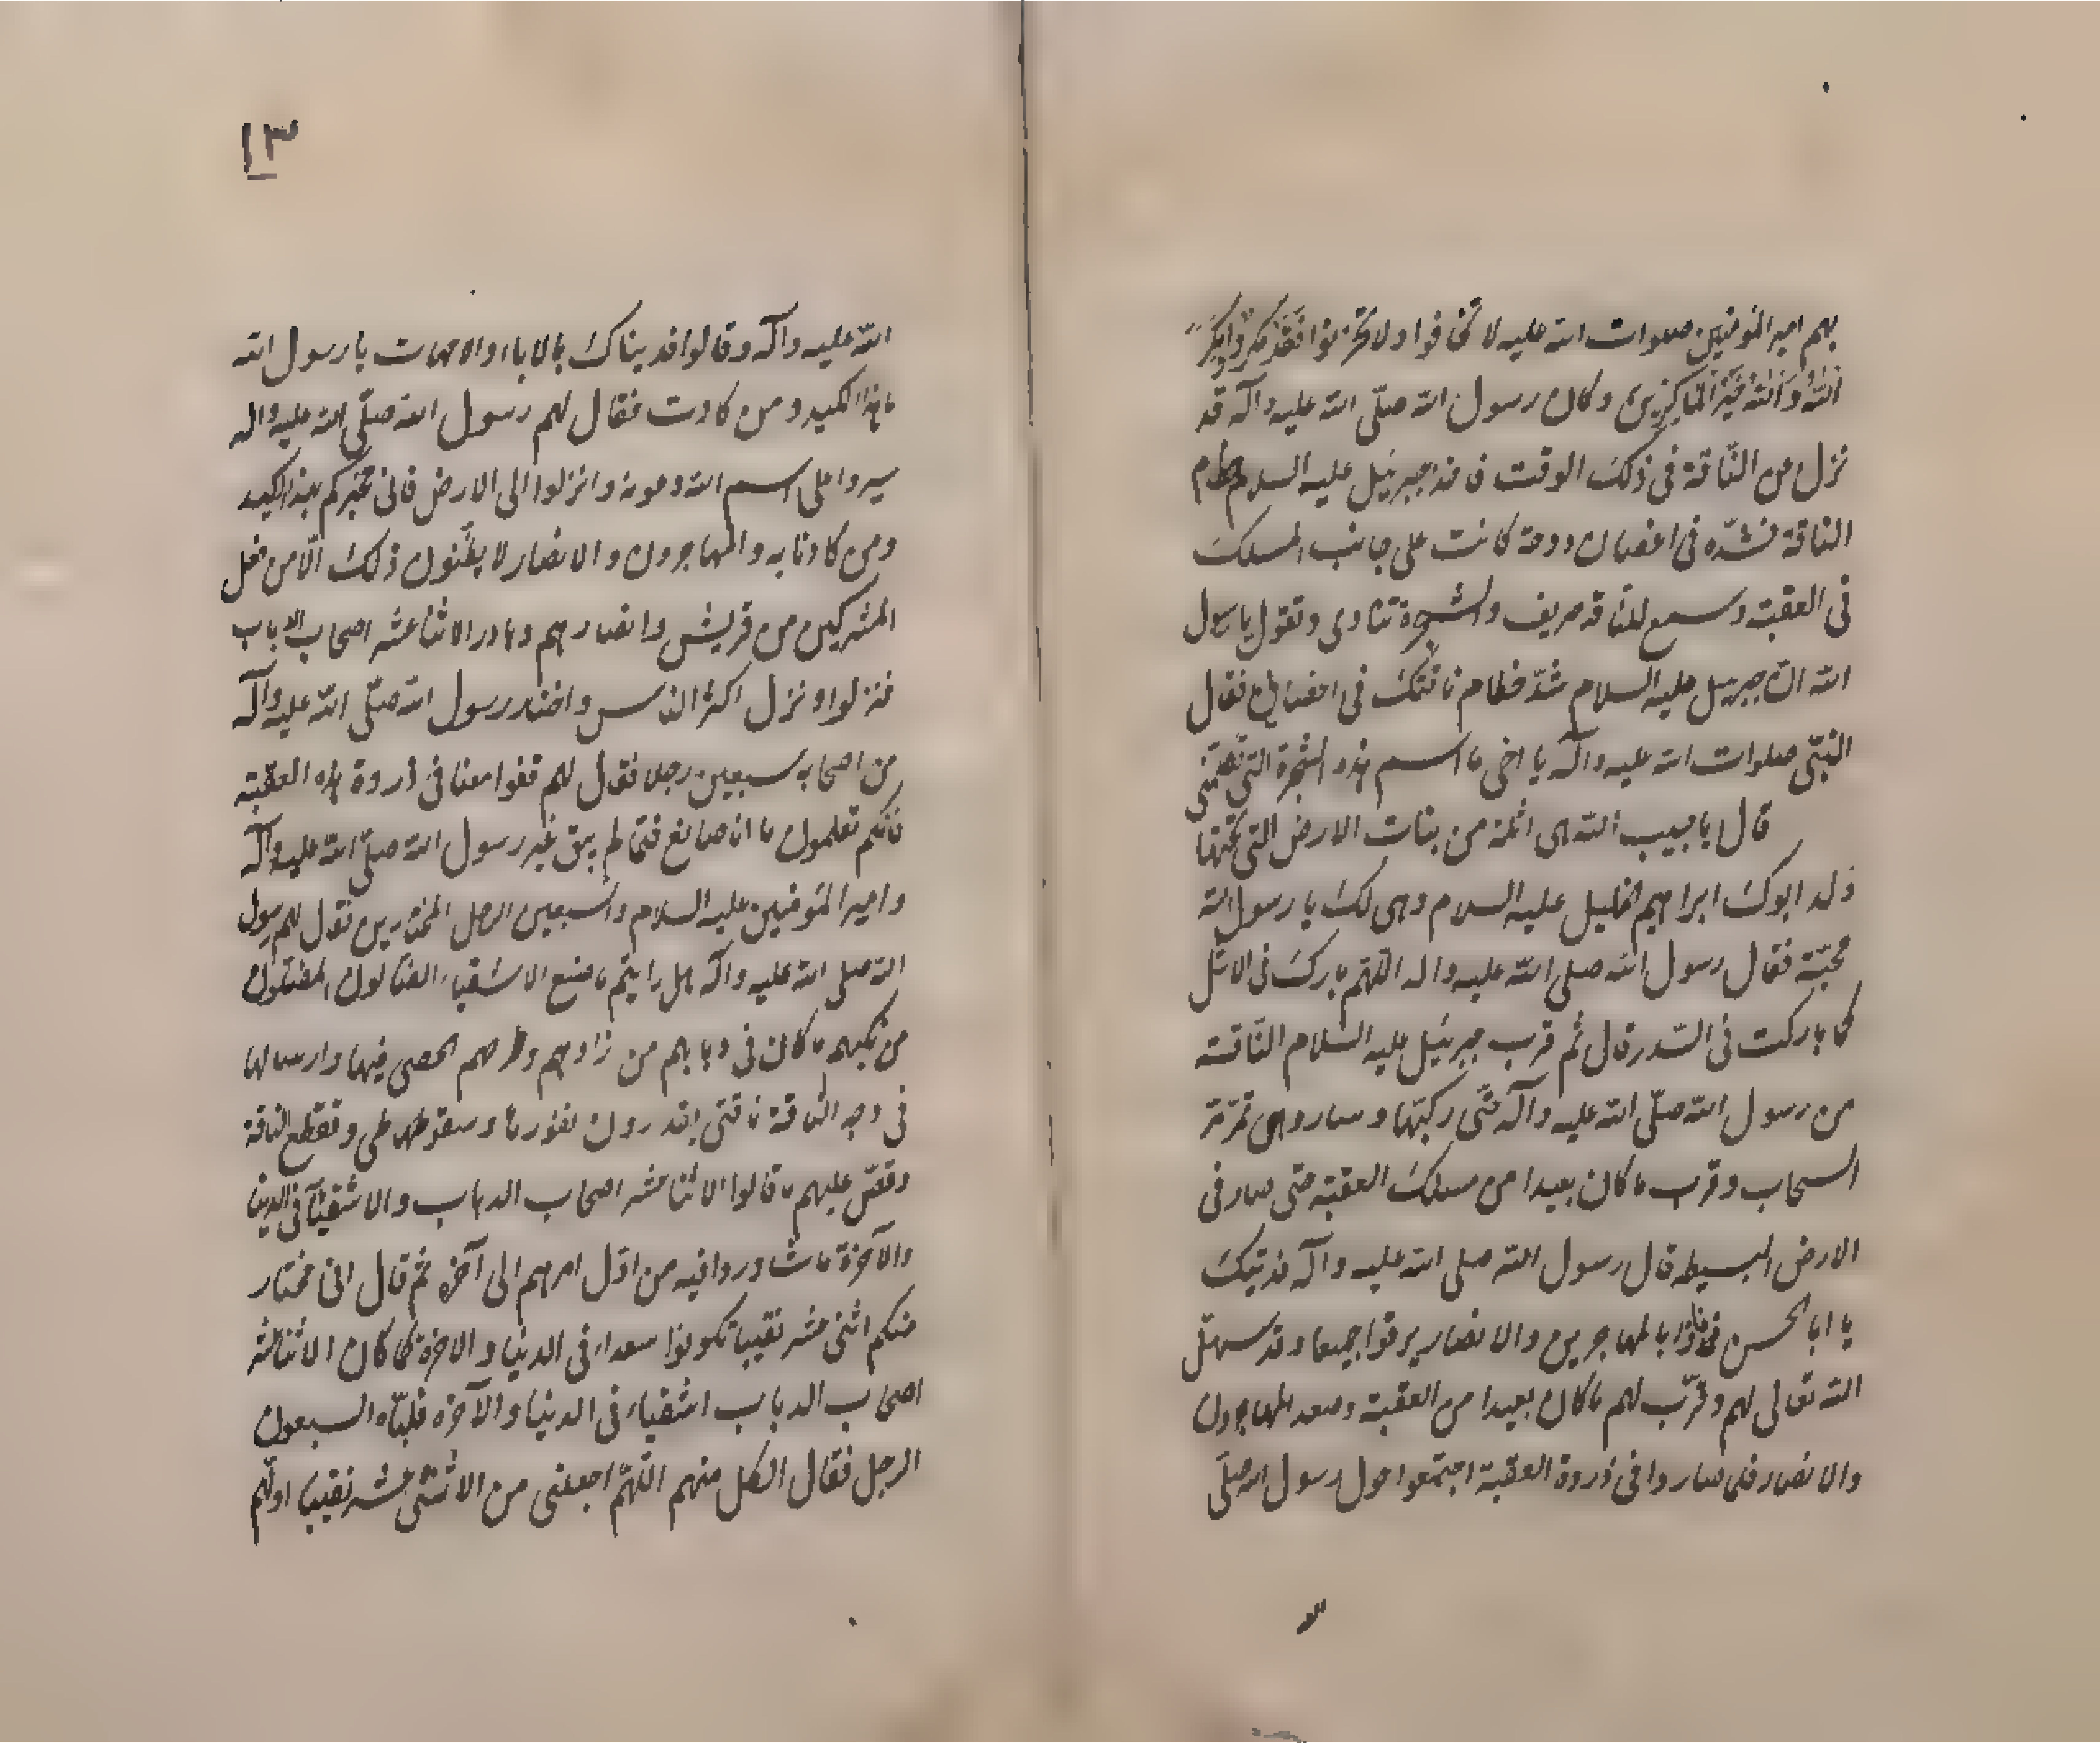 بهم امير المؤمنين صلوات الله عليه لا تخافوا ولا تحزنوا فَقَدْ مَكَرُوا وَمَكَرَ
اللهُ وَاللهُ خَيْرُ الْمَاكِرِينَ وكان رسول الله صلّى الله عليه وآله قد
نزل من النّاقة فى ذلك الوقت فاخذ جبرئيل عليه السلام خطام
الناقة فشدّه فى اغصان دوحة كانت على جانب المسلك
فى العقبة وسمع للناقة صريف والشجرة تنادى وتقول يا رسول
الله انّ جبرئيل عليه السلام شدّ خطام ناقتك فى اغصانى فقال
النبّى صلوات الله عليه وآله يا اخى ما اسم هذه الشجرة التى
قال يا حبيب الله هى اثلة من بنات الارض التى تحتها
ولد ابوك ابراهيم الخليل عليه السلام وهى لك يا رسول الله
محبّة فقال رسول الله صلى الله عليه واله اللّهم بارك فى الاثل
كما باركت فى السّدر قال ثم قرب جبرئيل عليه السّلام النّاقة
من رسول الله صلّى الله عليه وآله حتّى ركبتها وسار وهى تمرّ مرّ
السحاب وقرب ما كان بعيدا من مسلك العقبة حتى صار فى
الارض البسيطه قال رسول الله صلى الله عليه وآله فديتك
يا ابا الحسن بالمهاجرين والانصار يرقوا جميعا وقد سهّل
الله تعالى لهم وقرّب لهم ما كان بعيدا من العقبة وصعد المهاجرون
والانصار فلما صاروا فى ذروة العقبة اجتمعوا حول رسول الله صلّى
١٣
الله عليه وآله وقالوا فديناك بالاباء والامهات يا رسول الله
ما هذا الكيد ومن كادت فقال لهم رسول الله صلّى الله عليه واله
سيروا على اسم الله وعونه وانزلوا الى الارض فانى مخبركم بهذا الكيد
ومن كادنا به والمهاجرون والانصار لا يظنّون ذلك الّا من فعل
المشركين من قريش وانصارهم وبادر الاثنا عشر اصحاب الدباب
فنزلوا ونزل اكثر الناس واختار رسول الله صلّى الله عليه وآله
من اصحابه سبعين رجلا فقال لهم قفوا معنا فى ذروة هذه العقبة
فانكم تعلمون ما انا صانع فيما لم يبق غير رسول الله صلّى الله عليه وآله
وامير المؤمنين عليه السلام والسبعين الرجل المختارين فقال لهم رسول
الله صلى الله عليه وآله هل رايتم ما صنع الاشقياء الضالون المضلون
من كيدهم ما كان فى دبابهم من زادهم وطرحهم الحصى فيها وارسالها
فى وجه النّاقة ناقتى يقدرون نفورها وسقوطها وتقطع الناقة
وقصّ عليهم ما قالوا الاثنا عشر اصحاب الدباب والاشقياء فى الدنيا
والآخرة تشاوروا فيه من اوّل امرهم الى آخره ثم قال انى مختار
منكم اثنى عشر نقيبا تكونوا سعداء فى الدنيا والاخرة كما كان الاثنا عشر
اصحاب الدباب اشقياء فى الدنيا والآخرة فلبّاه السبعون
الرجل فقال الكل منهم اللّهمّ اجعلنى من الاثنى عشر نقيبا اولهم